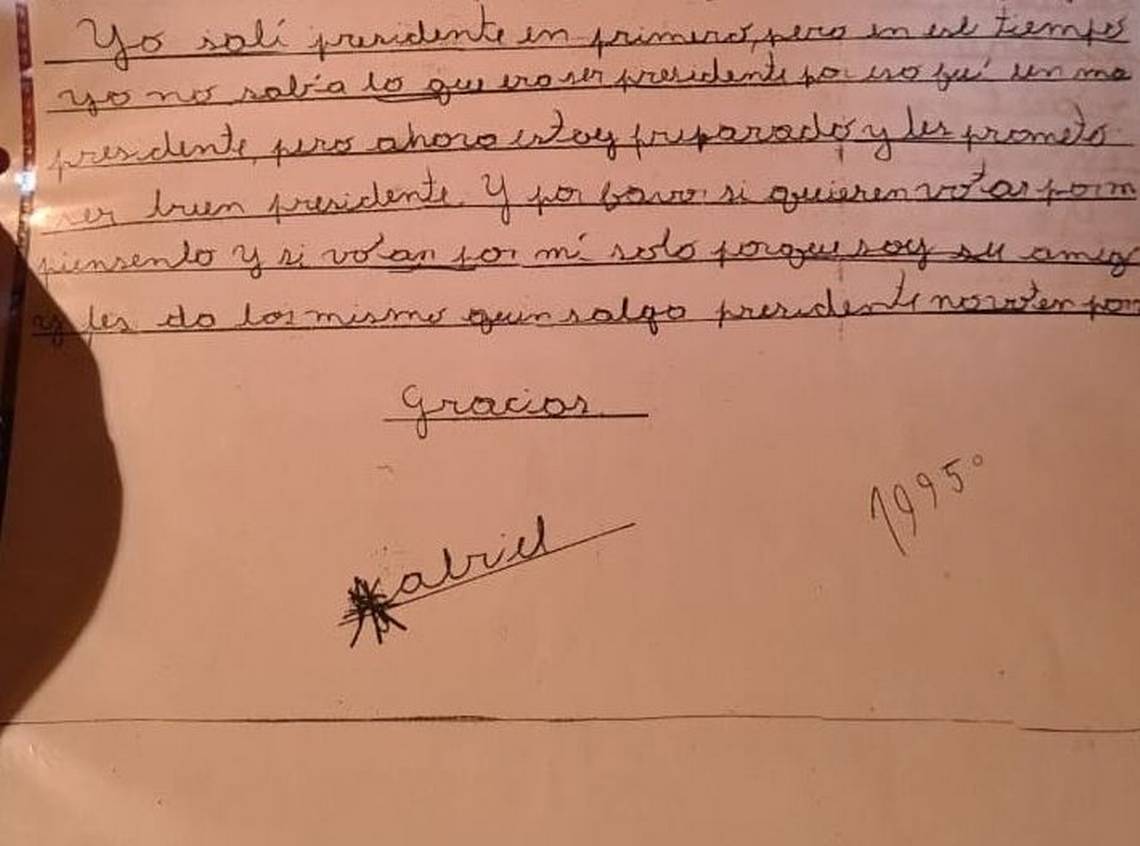 Yo salí presidente en primero, pero en ese tiempo
yo no sabía lo que era ser presidente por eso fuí un ma
presidente, pero ahora estoy preparado y les prometo
ser buen presidente. Y por favor si quieren votar por m
piensenlo y si votan por mí solo porque soy su amig
y les da los mismo quien salga presidente no voten por
Gracias
Gabriel
1995°